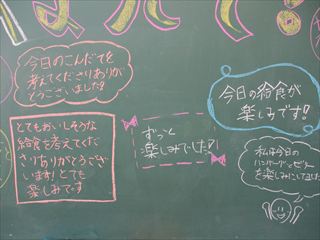 今日のこんだてを
考えてくださりありが
とうございました!
今日の給食が
楽しみです!
とてもおいしそうな
給食を考えてくだ
さりありがとうござい
います! とても
楽しみです
ずっと
楽しみでした!
私は今日の
ハンバーグとゼリー
を楽しみにしてました